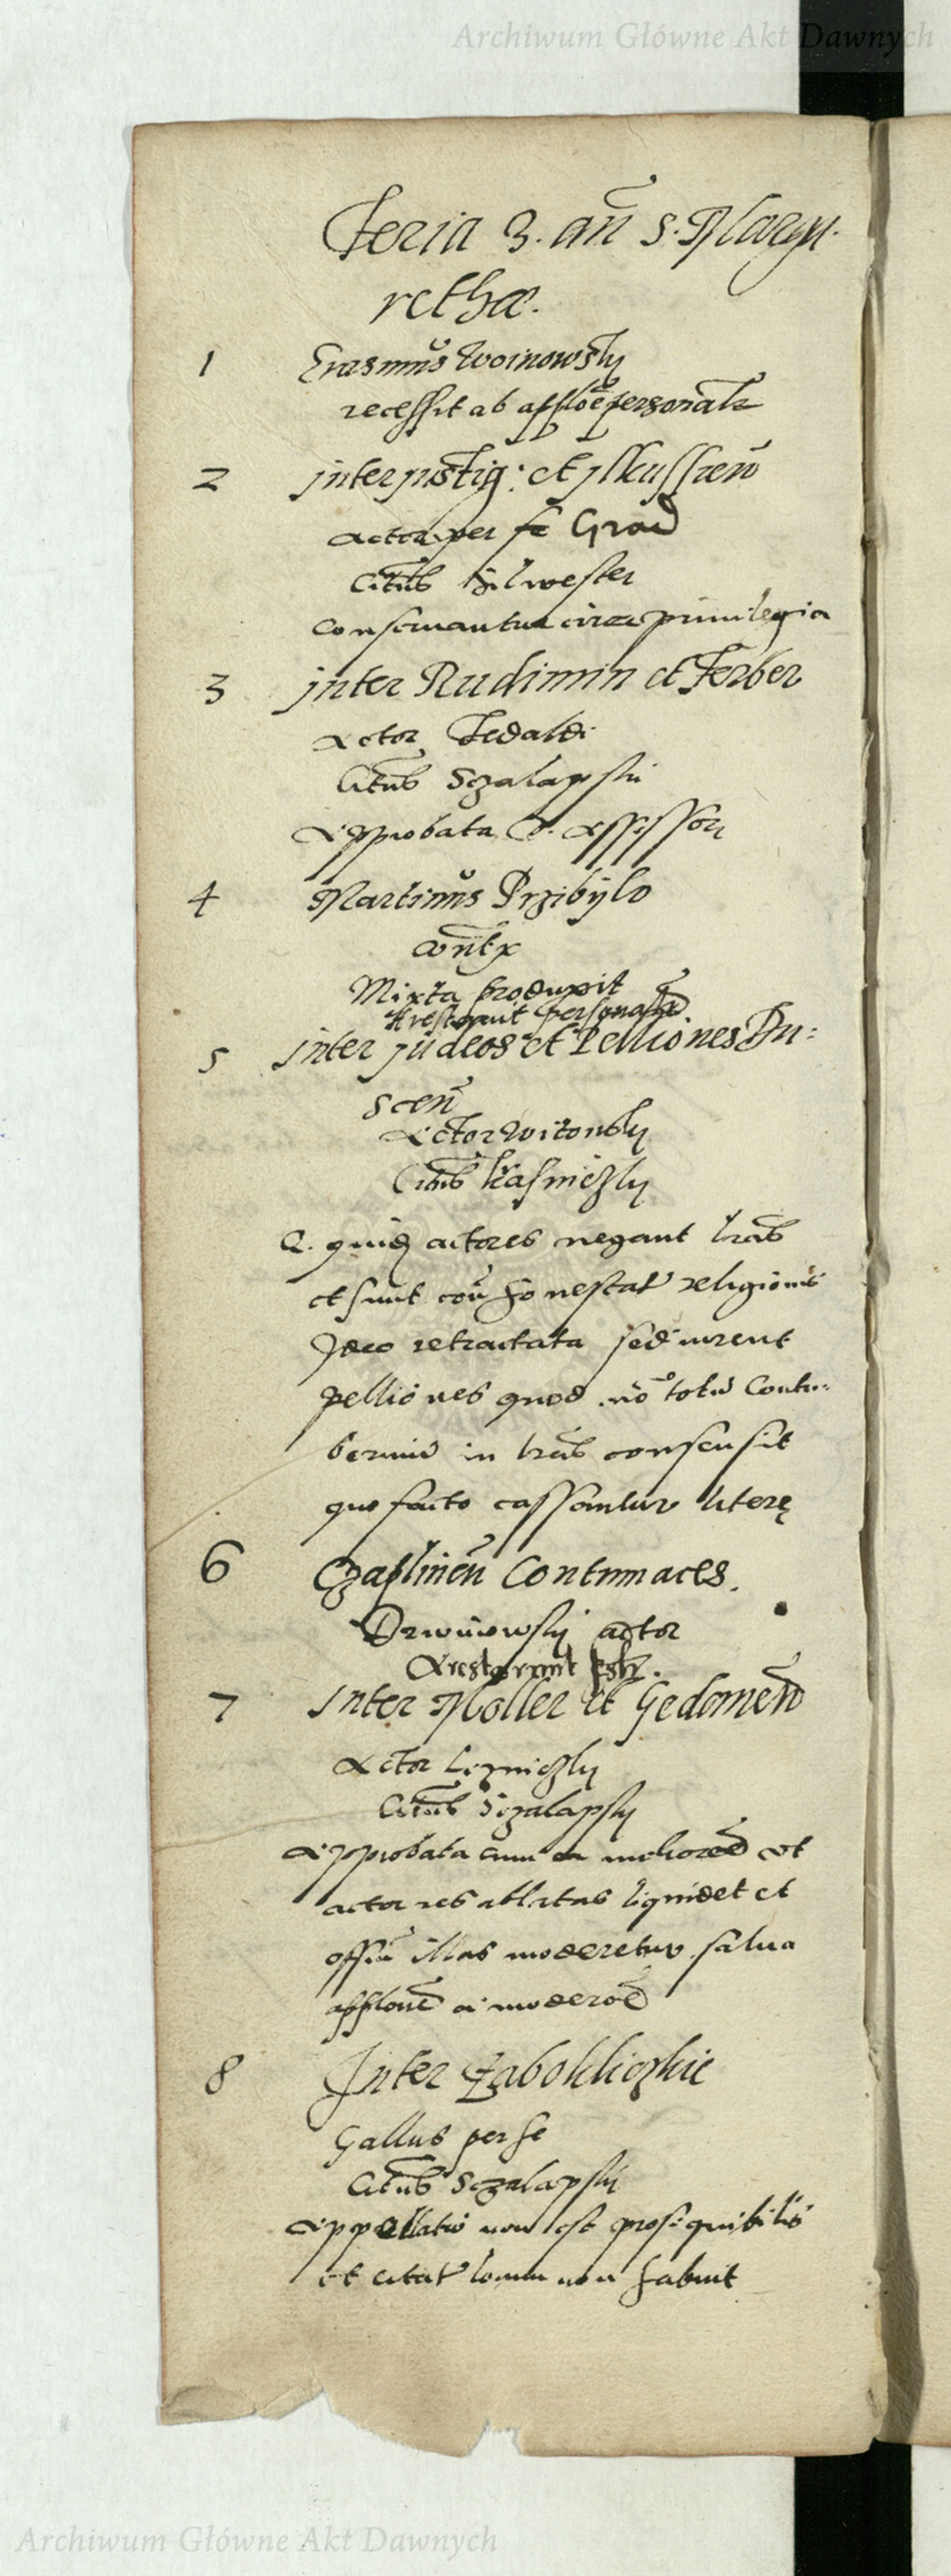 Archiwum Główne Akt Dawnych
Feria 3. añ S. Marga
rethæ.
1 Erasmus Woinowsky
recessit ab appłoe personali
2 Inter justig: et Ilkussień
Actor per se Grad
Citus Silwester
Conseruantur circa priuilegia
3 Inter Rudimin et Ferber
Actor Tedaldi
Citus Sczalapski
Approbata D. Assessor
4 Martinus Przibylo
cont
Mixta produxit
Arrestant personał
5 Inter judeos et Pelliones
Actor Witonsky
Citus Krasniczky
Q. quia actores negant lras
et sunt con honestat religionis
Ideo retractata sed iurent
pelliones quod nō totu Contu:
berniu in lras consensit
quo facto cassantur literę
6 Czaplineń Contumaces.
Drwinowsky actor
Arrestarunt
7 Inter Moller et Gedaneń
Actor Lezniczky
Citus Sczalapsky
Approbata cum meliored vt
actor res ablatas liquidet et
offiu illas moderetur salua
appłone a moderoe
8 Inter Zabokliczkie
Gallus per se
Citus Sczalapsky
Appellatio non est prosequibilis
et citat locum non habuit
Archiwum Główne Akt Dawnych